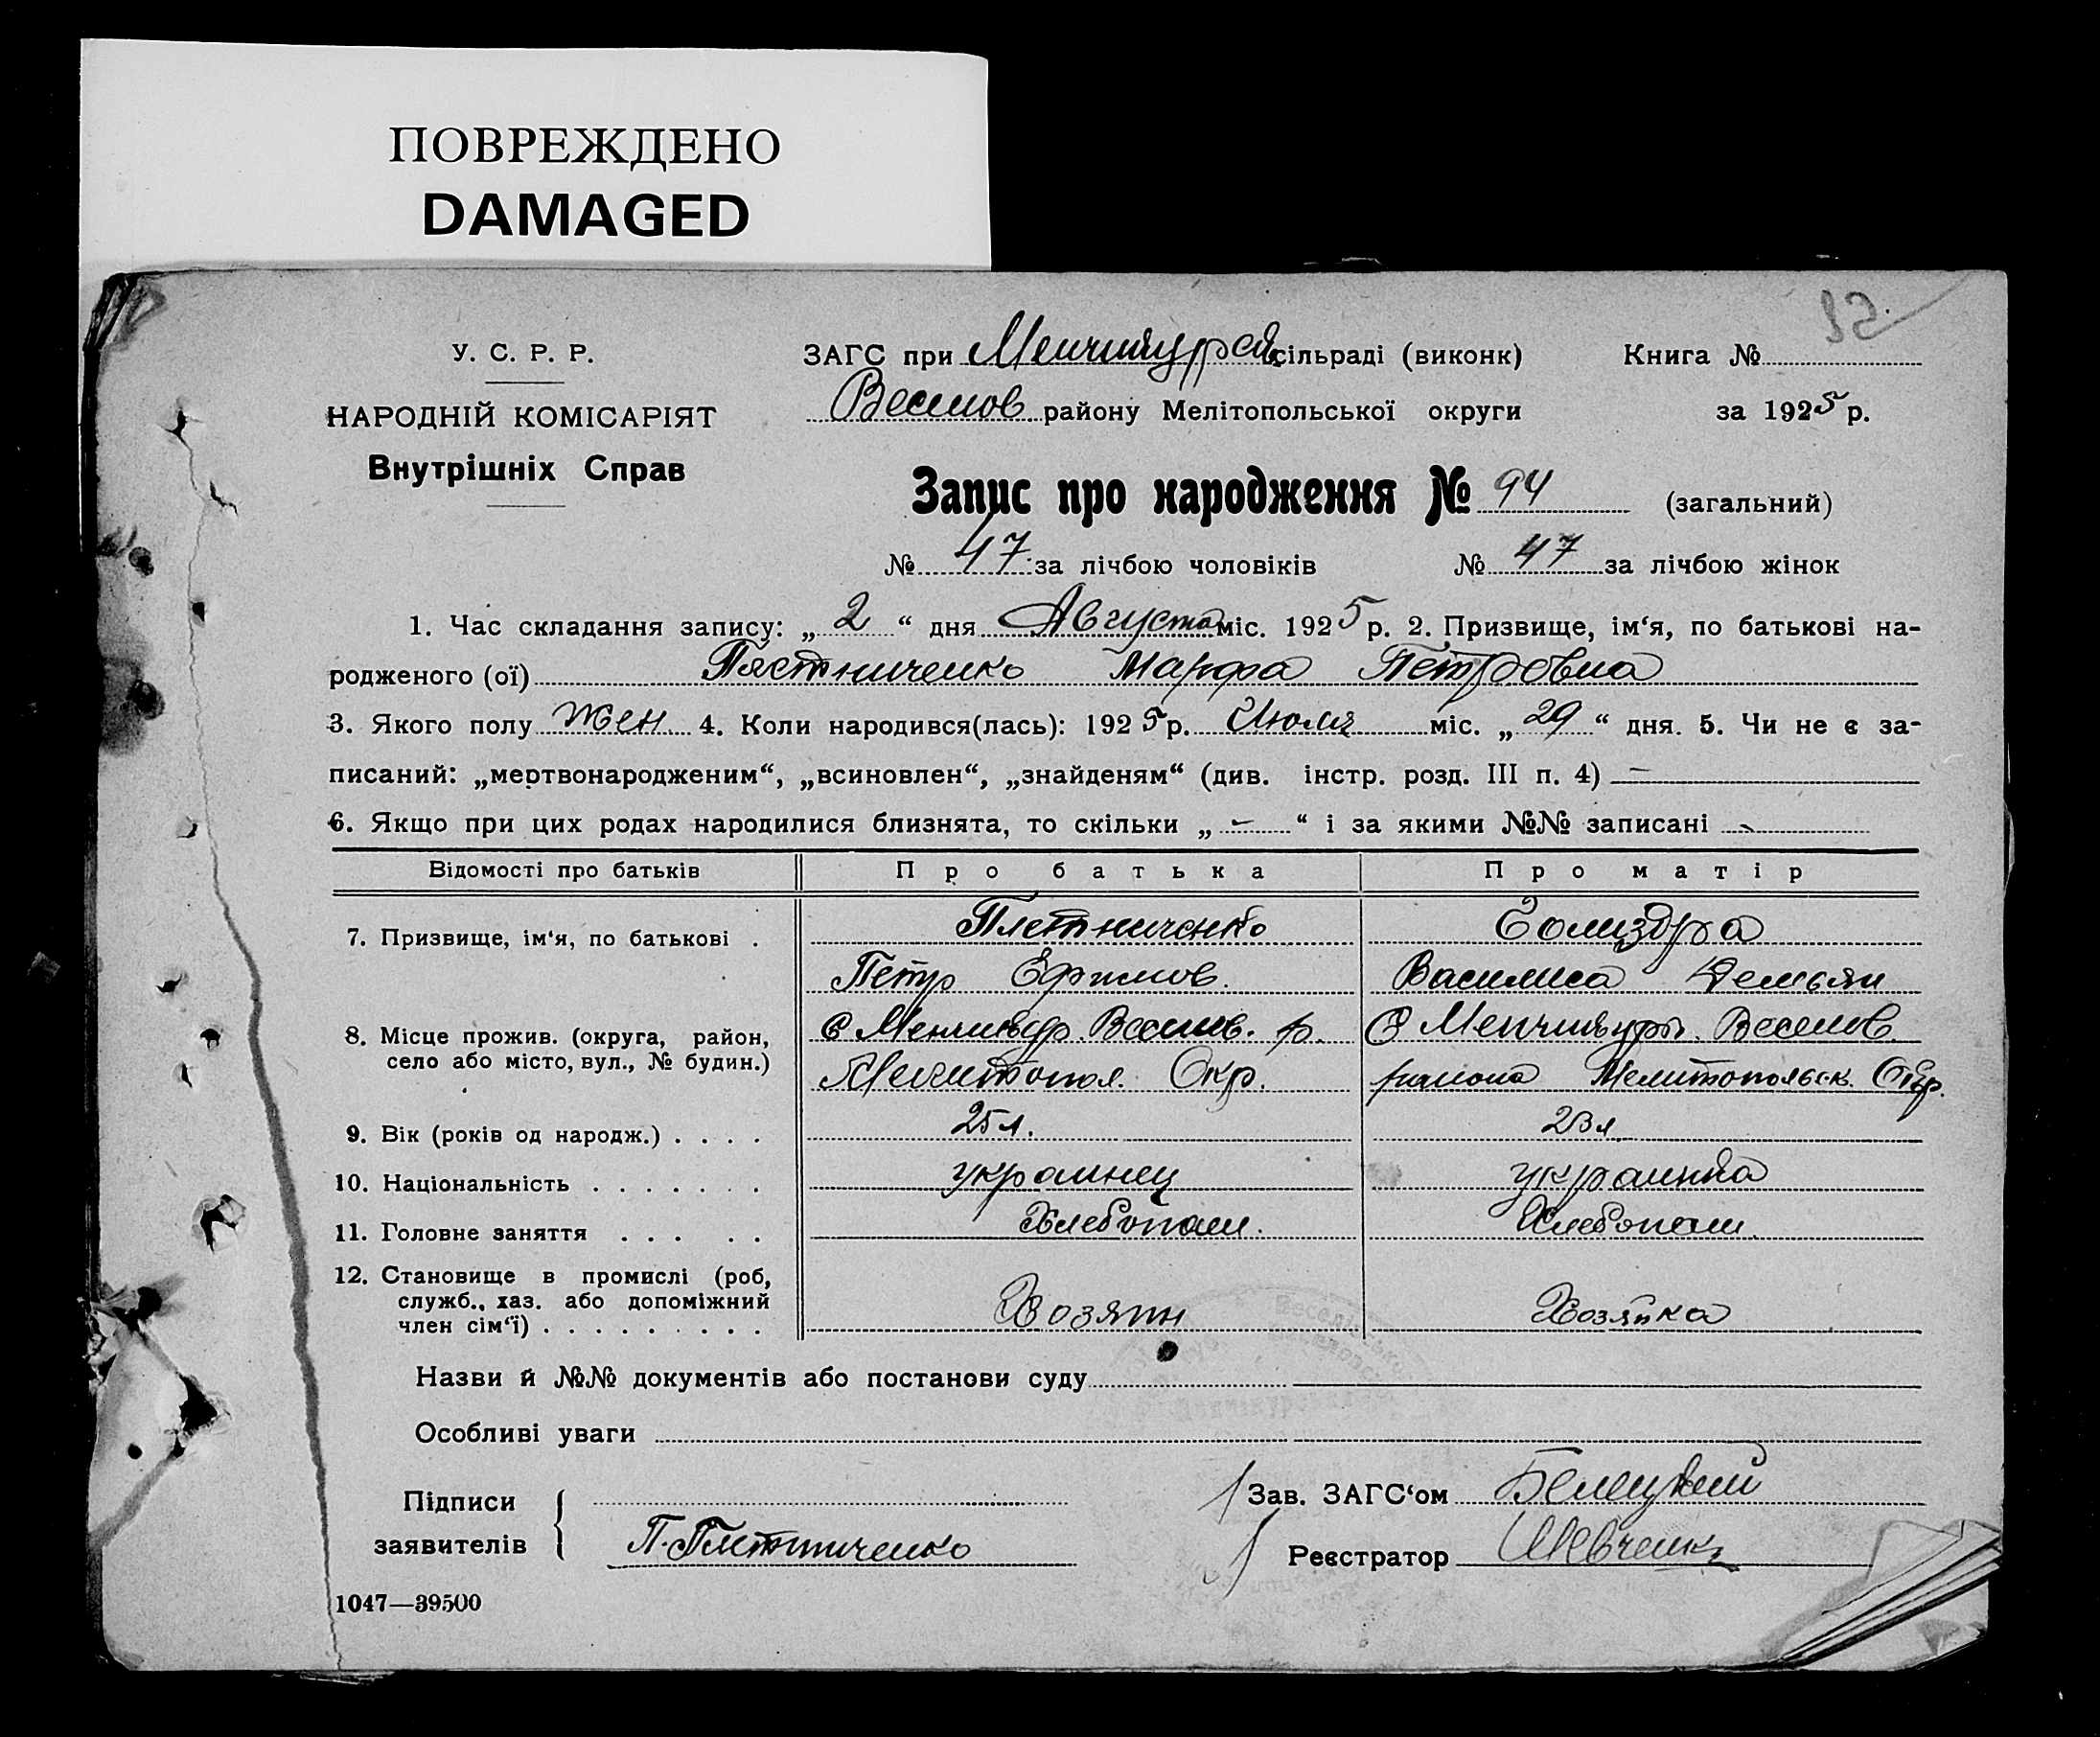 ПОВРЕЖДЕНО
DAMAGED
У. С. Р. Р.
НАРОДНІЙ КОМІСАРІЯТ
Внутрішніх Справ
ЗАГС при Менчикур сільраді (виконк)
Книга №
Веселов району Мелітопольської округи
за 1925 р.
Запис про народження № 94 (загальний)
№ 47 за лічбою чоловіків № 47 за лічбою жінок
1. Час складання запису: „ 2 “ дня Августа міс. 1925 р. 2. Призвище, ім‘я, по батькові на-
родженого (ої) Пятниченко Марфа Петровна
3. Якого полу жен. 4. Коли народився(лась): 1925 р. Июля міс. „ 29 “ дня. 5. Чи не є за-
писаний: „мертвонародженим“, „всиновлен“, „знайденям“ (див. інстр. розд. III п. 4) —
6. Якщо при цих родах народилися близнята, то скільки „ - “ і за якими №№ записані -
Відомості про батьків Про батька Про матір
7. Призвище, ім‘я, по батькові . Пятниченко Голиздра
Петр Ефимов. Василиса Демьян
8. Місце прожив. (округа, район, с Менчикур. Веселов. р. с Менчикуры. Веселов.
село або місто, вул., № будин.) Мелитопол. Окр. района Мелитопольск. Окр.
9. Вік (років од народж.) . . . . 25 л. 23 л.
10. Національність . . . . . . . украинец украинка
11. Головне заняття . . . . . Хлебопаш. Хлебопаш.
12. Становище в промислі (роб,
служб., хаз. або допоміжний
член сім‘ї) . . . . . . . . . Хозяин Хозяйка
Назви й №№ документів або постанови суду
Особливі уваги
Підписи заявителів
П. Пятниченко
Зав. ЗАГС‘ом Белецкий
Реєстратор Шевченко
1047—39500